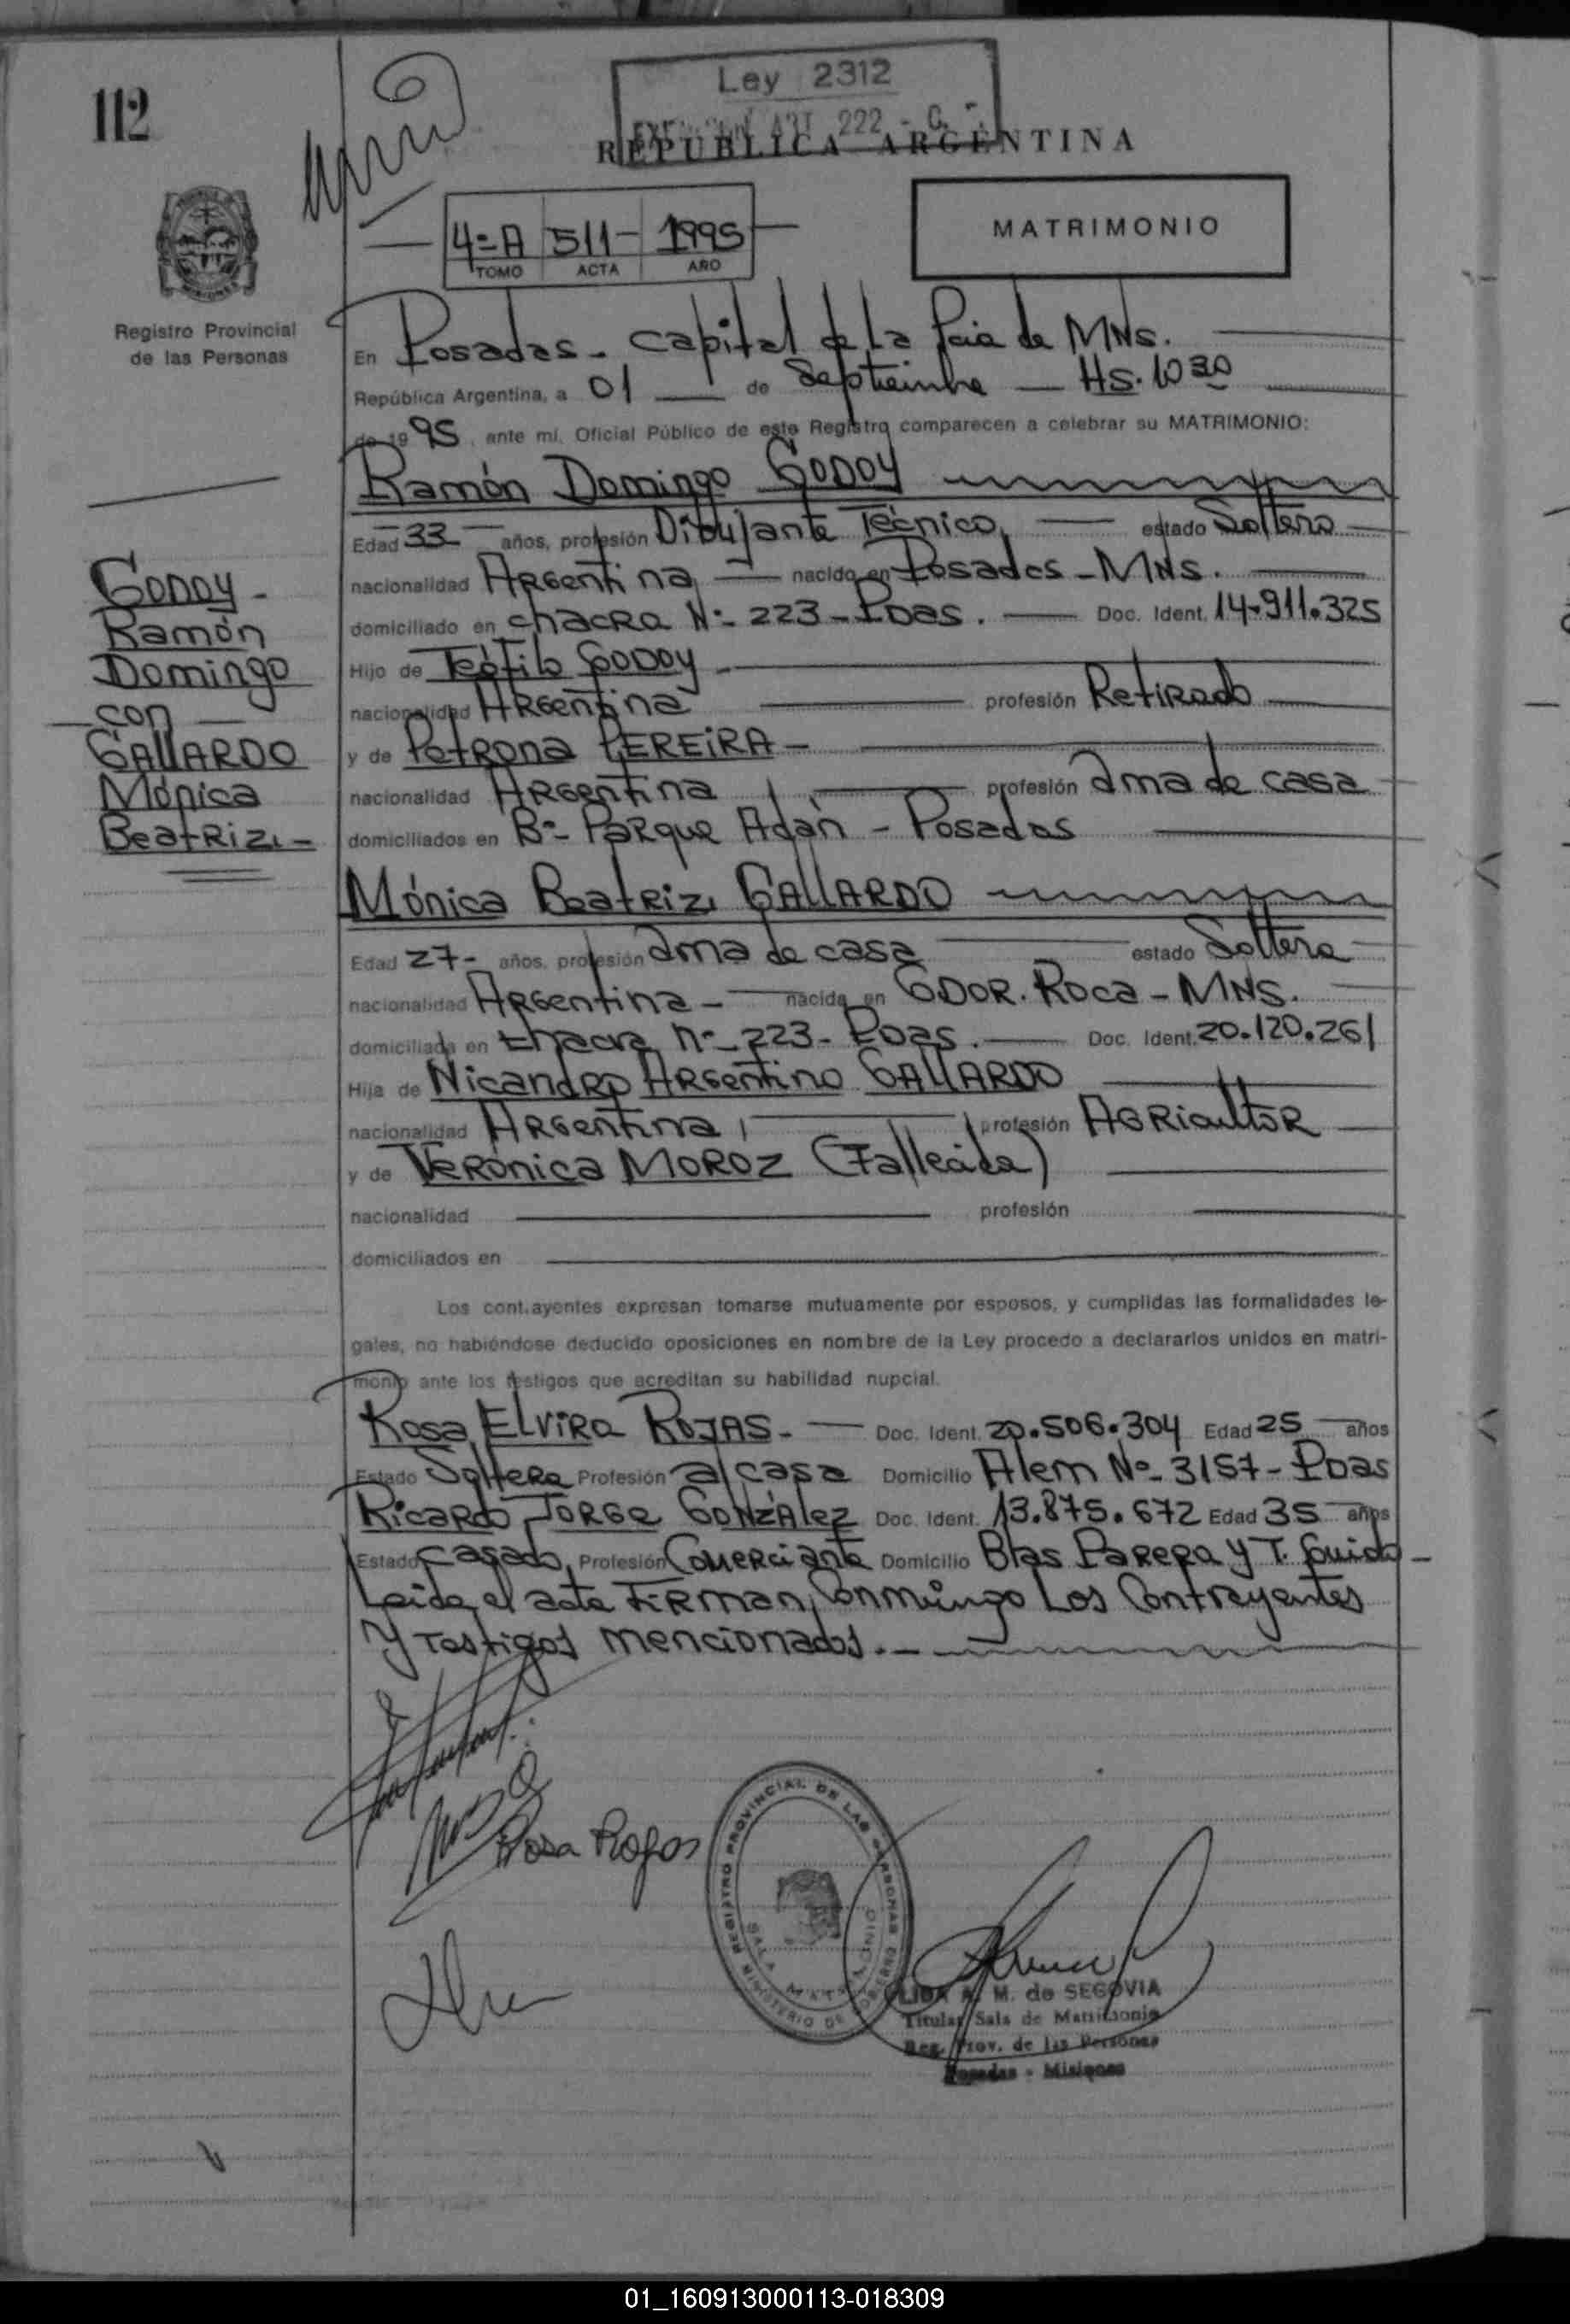 112
Ley 2312
ART 222 - C.
REPUBLICA ARGENTINA
4º-A 511- 1995
TOMO ACTA AÑO
MATRIMONIO
Registro Provincial
de las Personas
En Posadas - Capital de la Pcia de MNS.
República Argentina, a 01 de Septiembre Hs. 10 30
de 1995, ante mí, Oficial Público de este Registro comparecen a celebrar su MATRIMONIO:
Ramón Domingo GODOY
Edad 33 años, profesión Dibujante Técnico, estado Soltero
nacionalidad Argentina nacido en Posadas - MNS.
domiciliado en chacra Nº- 223 - Pdas. Doc. Ident. 14.911.325
Hijo de Teófilo GODOY
nacionalidad Argentina profesión Retirado
y de Petrona PEREIRA -
nacionalidad Argentina profesión ama de casa
domiciliados en Bº- Parque Adán - Posadas
GODOY -
Ramón
Domingo
con
GALLARDO
Mónica
Beatriz -
Mónica Beatriz GALLARDO
Edad 27- años, profesión ama de casa estado Soltera
nacionalidad Argentina - nacida en GDOR. Roca - MNS.
domiciliada en chacra nº- 223 - Pdas. Doc. Ident. 20.120.261
Hija de Nicandro Argentino GALLARDO
nacionalidad Argentina, profesión Agricultor
y de Verónica MOROZ (Fallecida)
nacionalidad profesión
domiciliados en
Los contrayentes expresan tomarse mutuamente por esposos, y cumplidas las formalidades le-
gales, no habiéndose deducido oposiciones en nombre de la Ley procedo a declararlos unidos en matri-
monio ante los testigos que acreditan su habilidad nupcial.
Rosa Elvira ROJAS - Doc. Ident. 20.506.304 Edad 25 años
Estado Soltera Profesión a/casa Domicilio Alem Nº- 3157 - Pdas
Ricardo Jorge GONZÁlez Doc. Ident. 13.875.672 Edad 35 años
Estado Casado, Profesión Comerciante Domicilio Blas Parera y T. Guido -
Leida el acta Firman Conmigo Los Contrayentes
y Testigos mencionados. -
Rosa Rojas
REGISTRO PROVINCIAL DE LAS PERSONAS
MINISTERIO DE GOBIERNO
SALA MATRIMONIO
A. M. de SEGOVIA
Titular Sala de Matrimonio
Reg. Prov. de las Personas
Posadas - Misiones
01_160913000113-018309